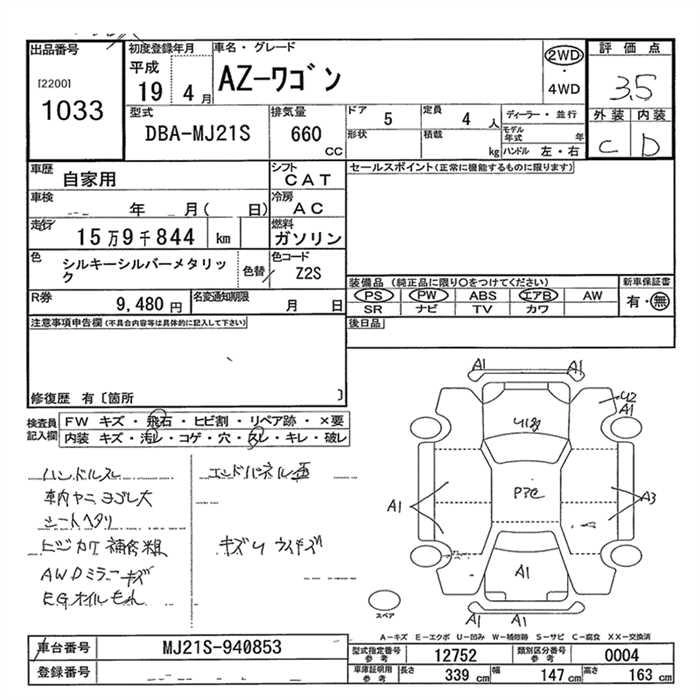 出品番号
[2200]
1033
初度登録年月
平成
19 4月
車名・グレード
AZ-ワゴン
2WD
・
4WD
評価点
3.5
外装 内装
C D
型式
DBA-MJ21S
排気量
660 CC
ドア 5
定員 4 人
形状
積載 kg
ディーラー・並行
モデル年式 年
ハンドル 左・右
車歴
自家用
シフト
CAT
車検
年 月( 日)
冷房
AC
走行
15万9千844 km
燃料
ガソリン
色
シルキーシルバーメタリック
色替
色コード
Z2S
R券
9,480 円
名変通知期限
月 日
セールスポイント(正常に機能するものに限ります)
装備品 (純正品に限り○をつけてください)
新車保証書
PS PW ABS エアB AW
有・無
SR ナビ TV カワ
後日品
注意事項申告欄(不具合内容等は具体的に記入して下さい)
修復歴 有〔箇所 〕
検査員
記入欄
FW キズ・飛石・ヒビ割・リペア跡・×要
内装 キズ・汚レ・コゲ・穴・スレ・キレ・破レ
ハンドルスレ
車内ヤニ ヨゴレ大
シートヘタリ
ヒジカケ補修跡
AWDミラーキズ
EGオイルもれ
エンドパネル歪
キズUウイキズ
A1 A1
U2
A1
A1
A3
A1
A1 A1
スペア
A-キズ E-エクボ U-凹み W-補修跡 S-サビ C-腐食 XX-交換済
車台番号
MJ21S-940853
登録番号
型式指定番号
参考
12752
類別区分番号
参考
0004
車庫証明用
参考
長さ 339 cm
幅 147 cm
高さ 163 cm